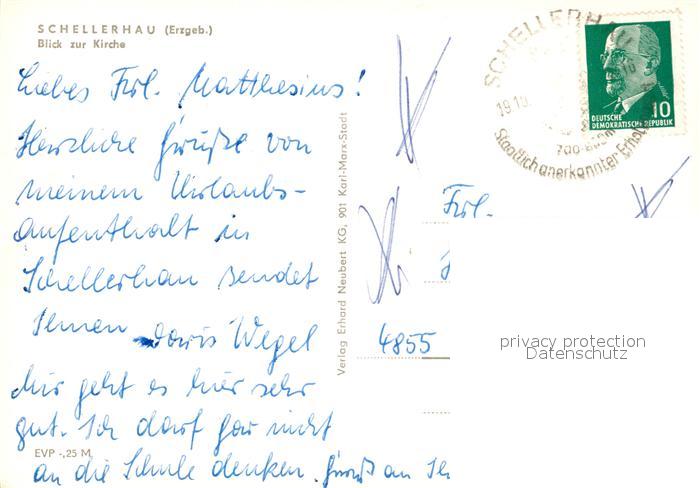 SCHELLERHAU (Erzgeb.)
Blick zur Kirche
Liebes Frl. Matthesius!
Herzliche Grüße von
meinem Urlaubs-
aufenthalt in
Schellerhau sendet
Ihnen Doris Wegel
Mir geht es hier sehr
gut. Ich darf gar nicht
an die Schule denken. Gruß an Ih
EVP -,25 M
Verlag Erhard Neubert KG, 901 Karl-Marx-Stadt
SCHELLERHAU
19.10.
Staatlich anerkannter Erhol
DEUTSCHE
DEMOKRATISCHE REPUBLIK
10
Frl.
4855
privacy protection
Datenschutz